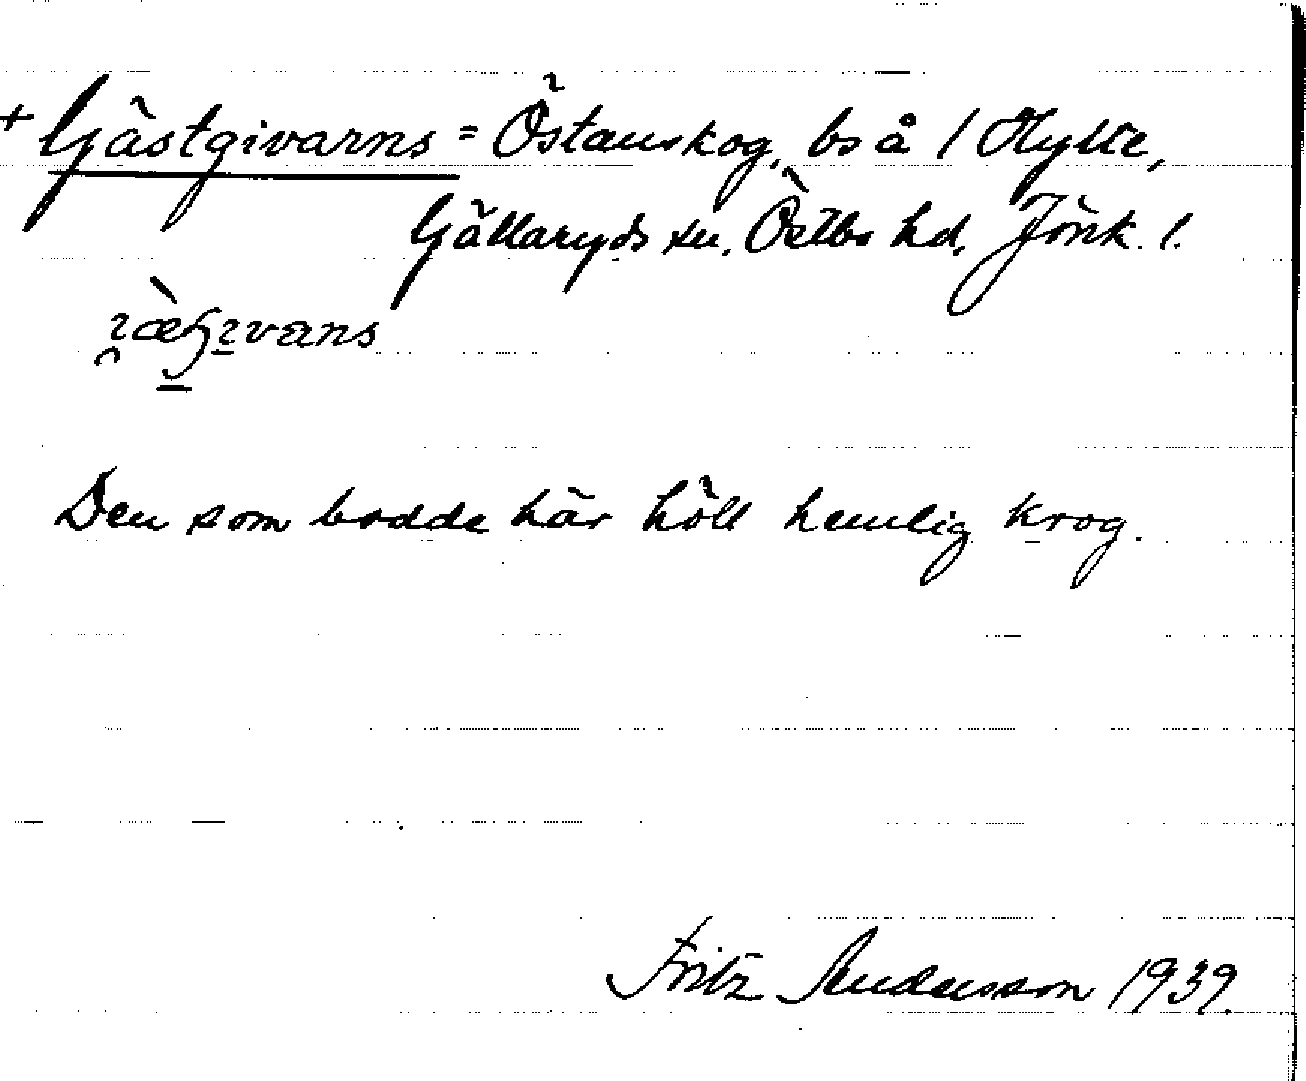 + Gästgivarns = Östanskog, bs å / Hylte,
Gällaryds sn, Östbo hd, Jönk. l.
Den som bodde här höll hemlig krog.
Fritz Andersson 1939.